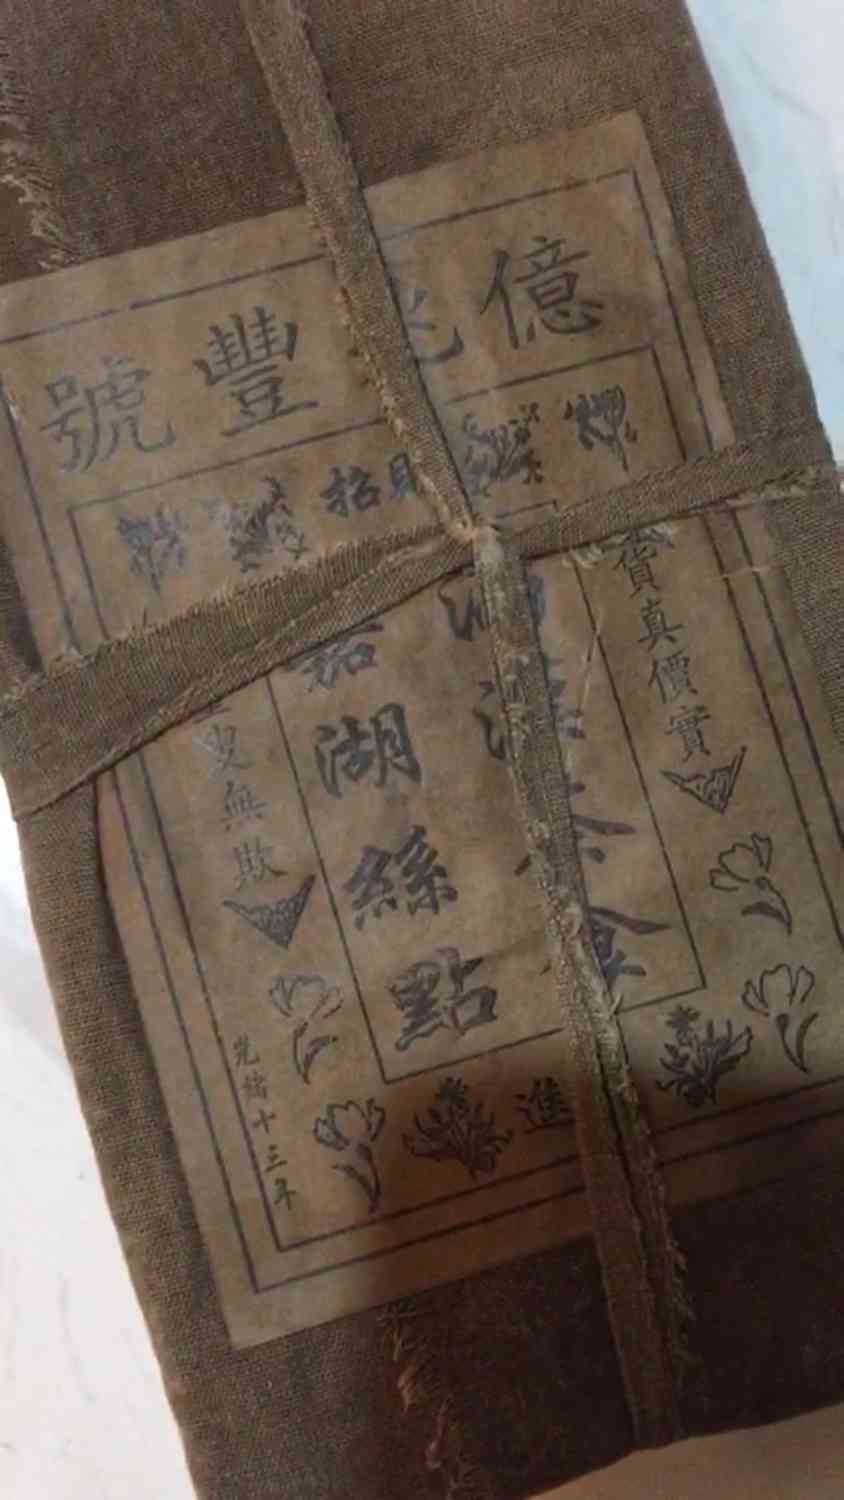 億兆豐號
招財
貨真價實
茶食
嘉湖絲點
叟無欺
光緒十三年
進